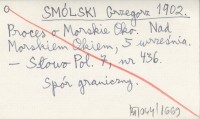 SMÓLSKI Grzegorz 1902.
Proces o Morskie Oko. Nad
Morskiem Okiem, 5 września.
— Słowo Pol. 7, nr 436.
Spór graniczny.
/1669